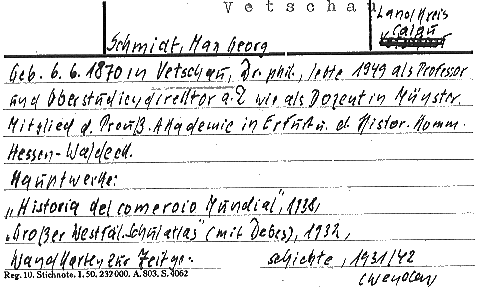 Vetschau
Land/Kreis
Calau
Schmidt, Max Georg
Geb. 6. 6. 1870 in Vetschau, Dr. phil., lebte 1949 als Professor
und Oberstudiendirektor a. D. wie als Dozent in Münster.
Mitglied d. Preuß. Akademie in Erfurt u. d. Histor. Komm.
Hessen-Waldeck.
Hauptwerke:
„Historia del comercio Mundial", 1938,
„Großer Westfäl. Schulatlas" (mit Debes), 1932,
Wandkarten zur Zeitge- schichte, 1931/42
Reg. 10. Stichnote. I. 50. 232 000. A. 803. S. 4062